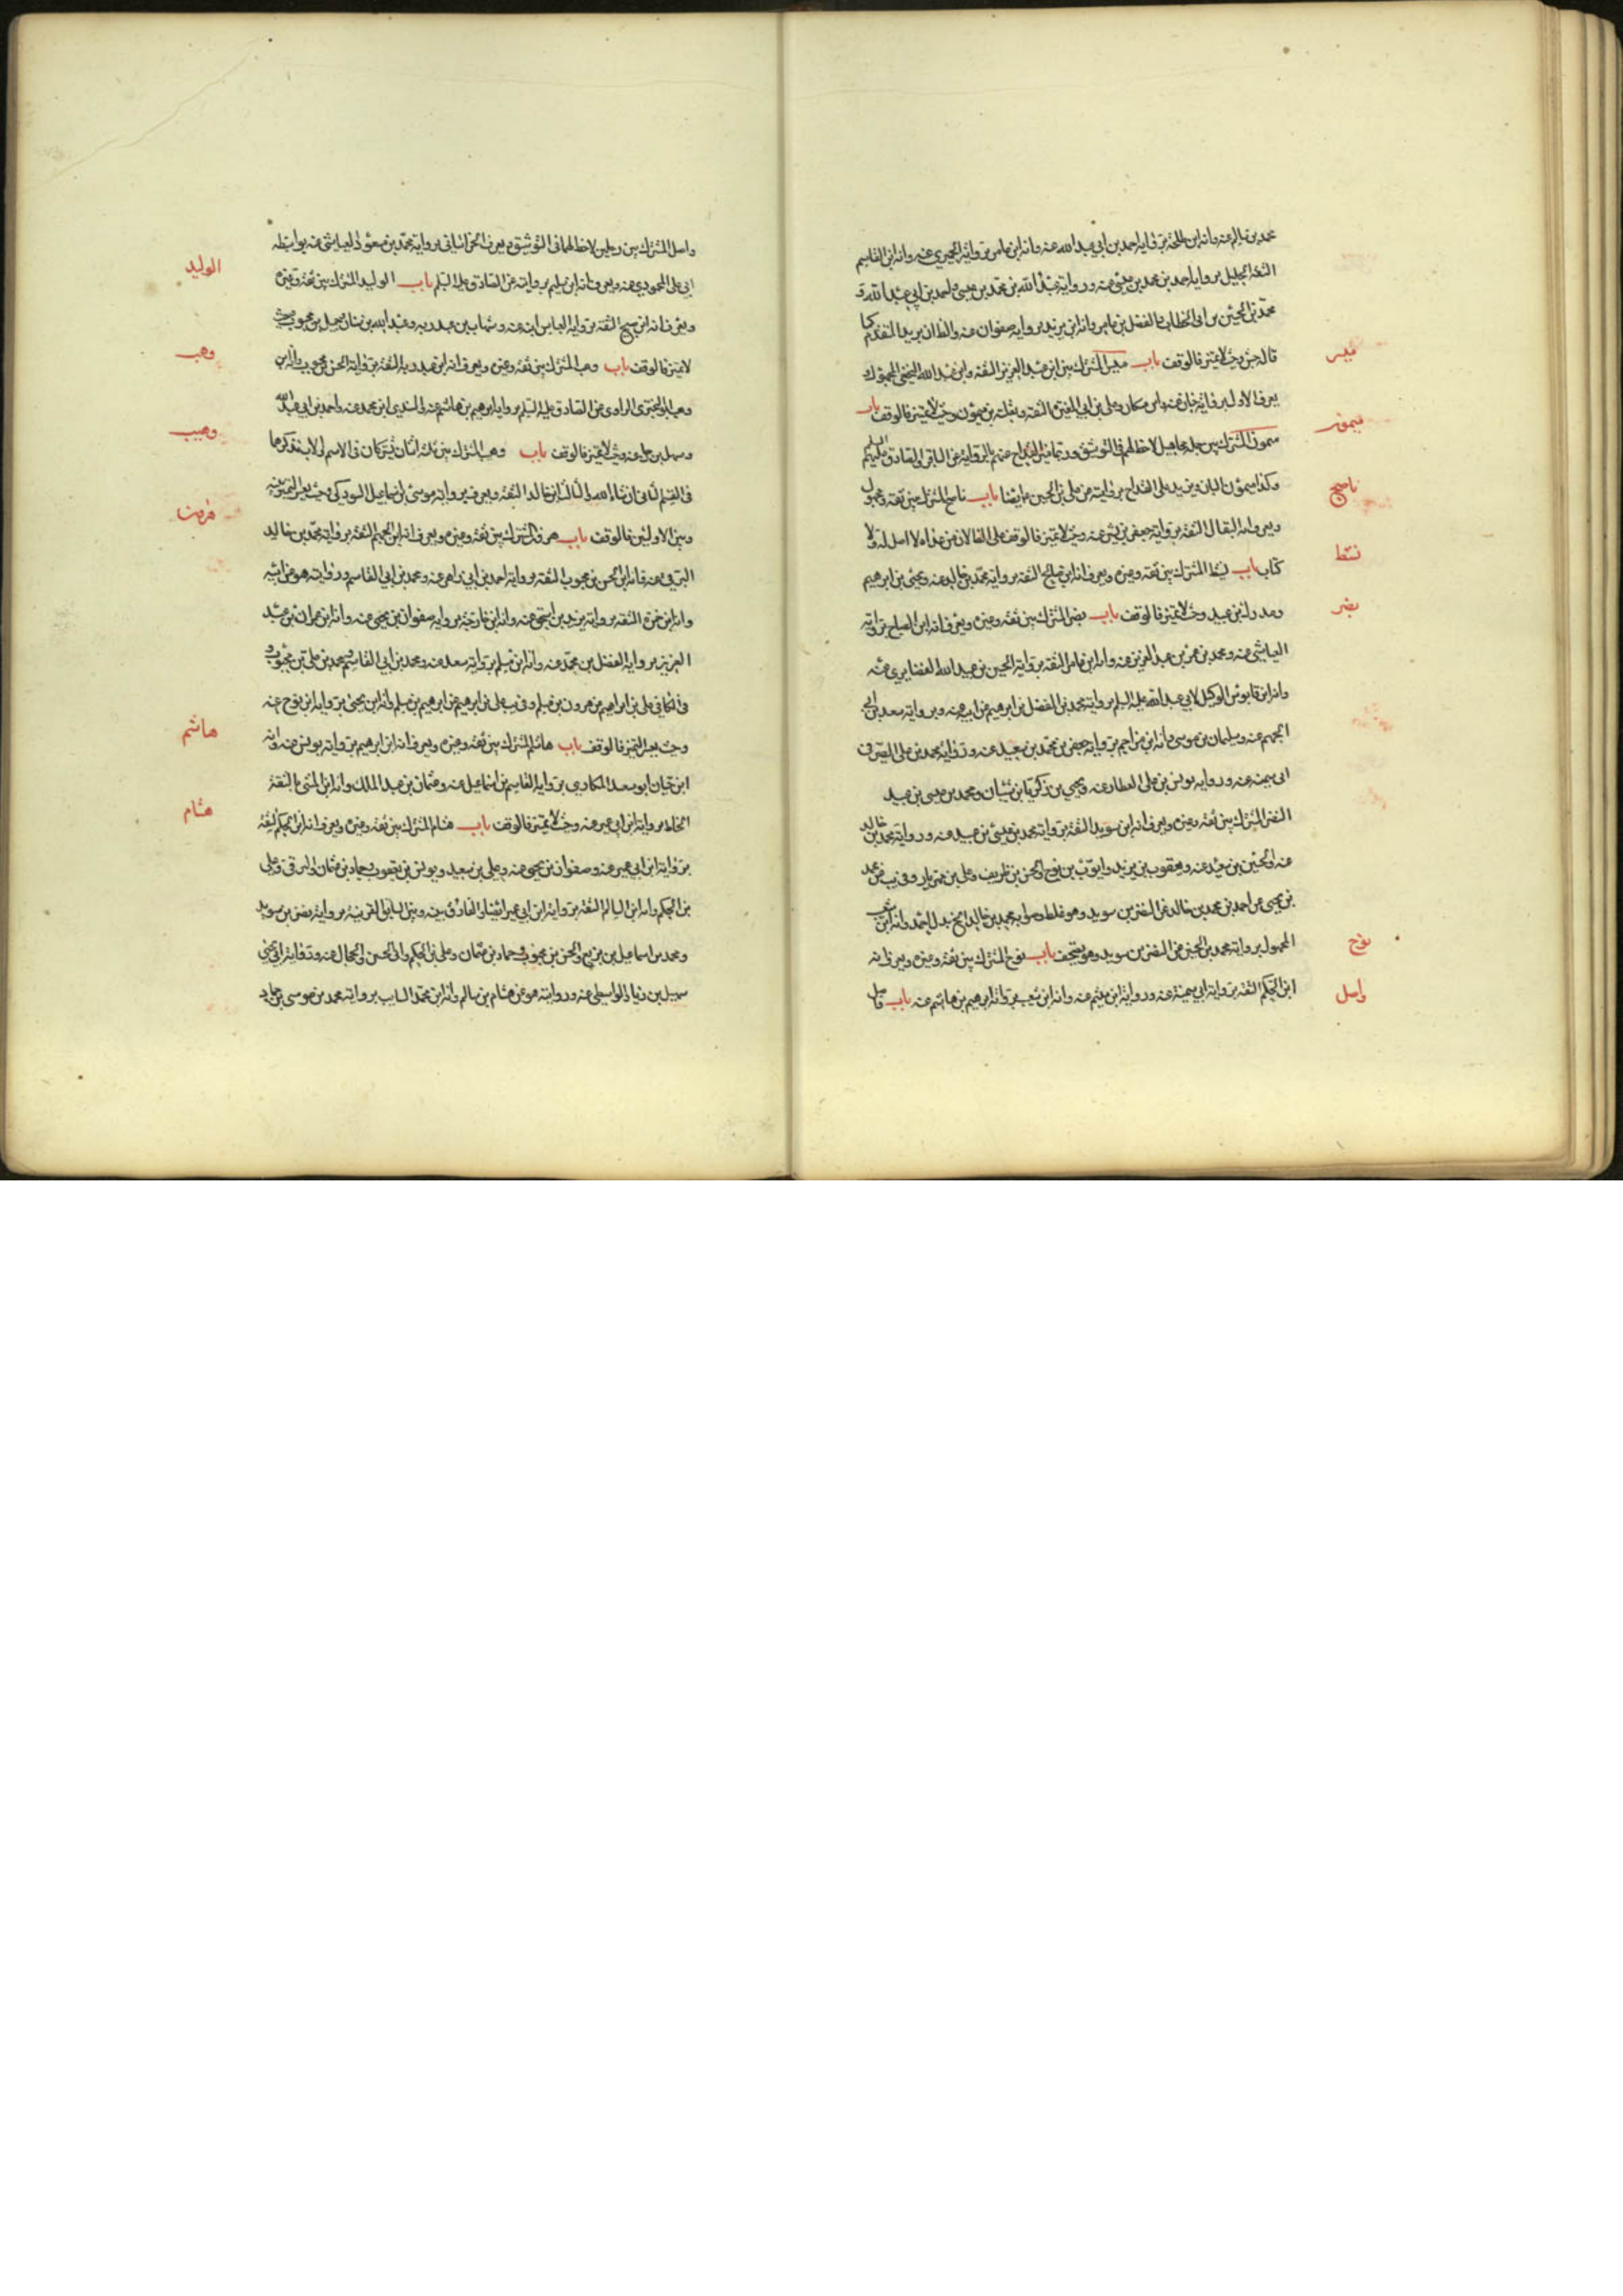 محمد بن سالم عنه وانه ابن طلحة برواية احمد بن ابي عبد الله عنه وانه ابن عامر برواية الحميري عنه وانه ابن القاسم
الثقة الجليل برواية احمد بن محمد بن عيسى عنه ورواية عبد الله بن محمد بن عيسى واحمد بن ابي عبد الله و
محمد بن الحسين بن ابي الخطاب والفضل بن عامر وانه ابن يزيد برواية صفوان عنه والظ ان يريد المتقدم كما
قاله جش وحيث لا تميز فالوقف باب ميسر المشترك بين ابن عبد العزيز الثقة وابن عبد الله النخعي المجهول و
ميسر
يعرف الاول برواية ابان عنه وابن مسكان وعلي بن ابي المغيرة الثقة وثعلبة بن ميمون وحيث لا تميز فالوقف باب
ميمون
ميمون المشترك بين جملة مجاهيل لاحظ لهم في التوثيق وربما ميز القداح عنهم بالرواية عن الباقر والصادق عليهم السلم
وكذا ميمون البان ويزيد على القداح بروايته عن علي بن الحسين ع ايضا باب ناصح المشترك بين ثقة ومجهول
ناصح
ويعرف انه البقال الثقة برواية جعفر بن بشير عنه وحيث لا تميز فالوقف على القالان من عداه لا اصل له ولا
كتاب باب نشيط المشترك بين ثقة وغيره ويعرف انه ابن صالح الثقة برواية محمد بن خالد عنه ويحيى بن ابراهيم
نشيط
وعد ولد بن عبيد وحيث لا تميز فالوقف باب نصر المشترك بين ثقة وغيره ويعرف انه ابن الصباح برواية
نصر
العياشي عنه ومحمد بن عمر بن عبد العزيز عنه وانه ابن عامر الثقة برواية الحسين بن عبيد الله الغضايري عنه
وانه ابن قابوس الوكيل لابي عبد الله عليه السلم برواية محمد بن الفضل بن ابرهيم عن ابيه عنه وبرواية سعد بن ابي
الجهم عنه وسليمان بن موسى وانه ابن مزاحم برواية جعفر بن محمد بن سعيد عنه ورواية محمد بن علي الصيرفي
ابي سمينه عنه ورواية يونس بن علي العطار عنه ويحيى بن زكريا بن شيبان ومحمد بن عيسى بن عبيد
النضر المشترك بين ثقة وغيره ويعرف انه ابن سويد الثقة برواية محمد بن عيسى بن عبيد عنه ورواية محمد بن خالد
عنه والحسين بن سعيد عنه ويعقوب بن يزيد وايوب بن نوح والحسن بن ظريف وعلي بن مهزيار وفي يب عن محمد
بن يحيى عن احمد بن محمد بن خالد عن النضر بن سويد وهو غلط وصوابه محمد بن خالد الخ بدل احمد وانه ابن شعيب
المجهول برواية محمد بن الحسين عن النضر بن سويد وهو يتجه باب نوح المشترك بين ثقة وغيره ويعرف انه
نوح
ابن الحكم الثقة برواية ابي سمينة عنه ورواية ابن ميثم عنه وانه ابن شعيب برواية ابرهيم بن هاشم عنه باب واصل
واصل
واصل المشترك بين رجلين لاحظ لهما في التوثيق ويعرف الخراساني برواية محمد بن مسعود العياشي عنه بواسطة
الوليد
ابي علي المحمودي عنه ويعرف انه ابن سليم بروايته عن الصادق عليه السلم باب الوليد المشترك بين ثقة وغيره
ويعرف انه ابن صبيح الثقة برواية العباس ابنه عنه وشهاب بن عبد ربه وعبد الله بن سنان وجميل بن محبوب وحيث
لا تميز فالوقف باب وهب المشترك بين ثقة وغيره ويعرف انه ابن عبد ربه الثقة برواية الحسن بن محبوب وانه ابن
وهب
وهب ابو البختري الراوي عن الصادق عليه السلم برواية ابرهيم بن هاشم عنه والسندي ابن محمد عنه واحمد بن ابي عبد الله
وسهل بن رجا عنه وحيث لا تميز فالوقف باب وهيب المشترك بين ثلثة اثنان يشتركان في الاسم والاب نذكرهما
وهيب
في القسم الثاني ان شاء الله والثالث ابن خالد الثقة ويعرف برواية موسى بن اسماعيل السودكي وحيث يعسر التميز بينه
وبين الاولين فالوقف باب هرون المشترك بين ثقة وغيره ويعرف انه ابن الجهم الثقة برواية محمد بن خالد
هرون
البرقي عنه وانه ابن الحسن بن محبوب الثقة برواية احمد بن ابي زاهر عنه ومحمد بن ابي القاسم وروايته هو عن ابيه
وانه ابن حمزة الثقة برواية يزيد بن اسحق عنه وانه ابن خارجة برواية صفوان بن يحيى عنه وانه ابن عمران بن عبد
العزيز برواية الفضل بن محمد عنه وانه ابن مسلم برواية سعد عنه ومحمد بن ابي القاسم ومحمد بن علي بن محبوب و
في الكافي علي بن ابراهيم عن هرون بن مسلم وفي يب علي بن ابرهيم عن ابرهيم بن مسلم وانه ابن يحيى برواية ابن نوح عنه
وحيث يعسر التميز فالوقف باب هاشم المشترك بين ثقة وغيره ويعرف انه ابن ابرهيم برواية يونس عنه وانه
هاشم
ابن حيان ابو سعيد المكاري برواية القاسم بن اسماعيل عنه وعثمان بن عبد الملك وانه ابن المثنى الثقة
الحناط برواية ابن ابي عمير عنه وحيث لا تميز فالوقف باب هشام المشترك بين ثقة وغيره ويعرف انه ابن الحكم الثقة
هشام
برواية ابن ابي عمير عنه وصفوان بن يحيى عنه وعلي بن سعيد ويونس بن يعقوب وحماد بن عثمان والبرقي وعلي
بن الحكم وانه ابن سالم الثقة برواية ابن ابي عمير ايضا والفارق بينه وبين السابق القرينة برواية نضر بن سويد
ومحمد بن اسماعيل بن بزيع والحسن بن محبوب وحماد بن عثمان وعلي بن الحكم والحجال عنه ورواية ابي يحيى
سهيل بن زياد الواسطي عنه وروايته هو عن هشام بن سالم وانه ابن محمد السايب برواية محمد بن موسى بن حماد